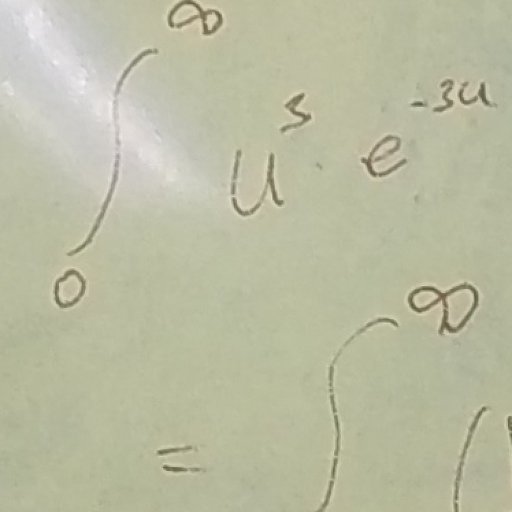 ∫₀^∞ u^s · e^{-3u}
= ∫^∞ (